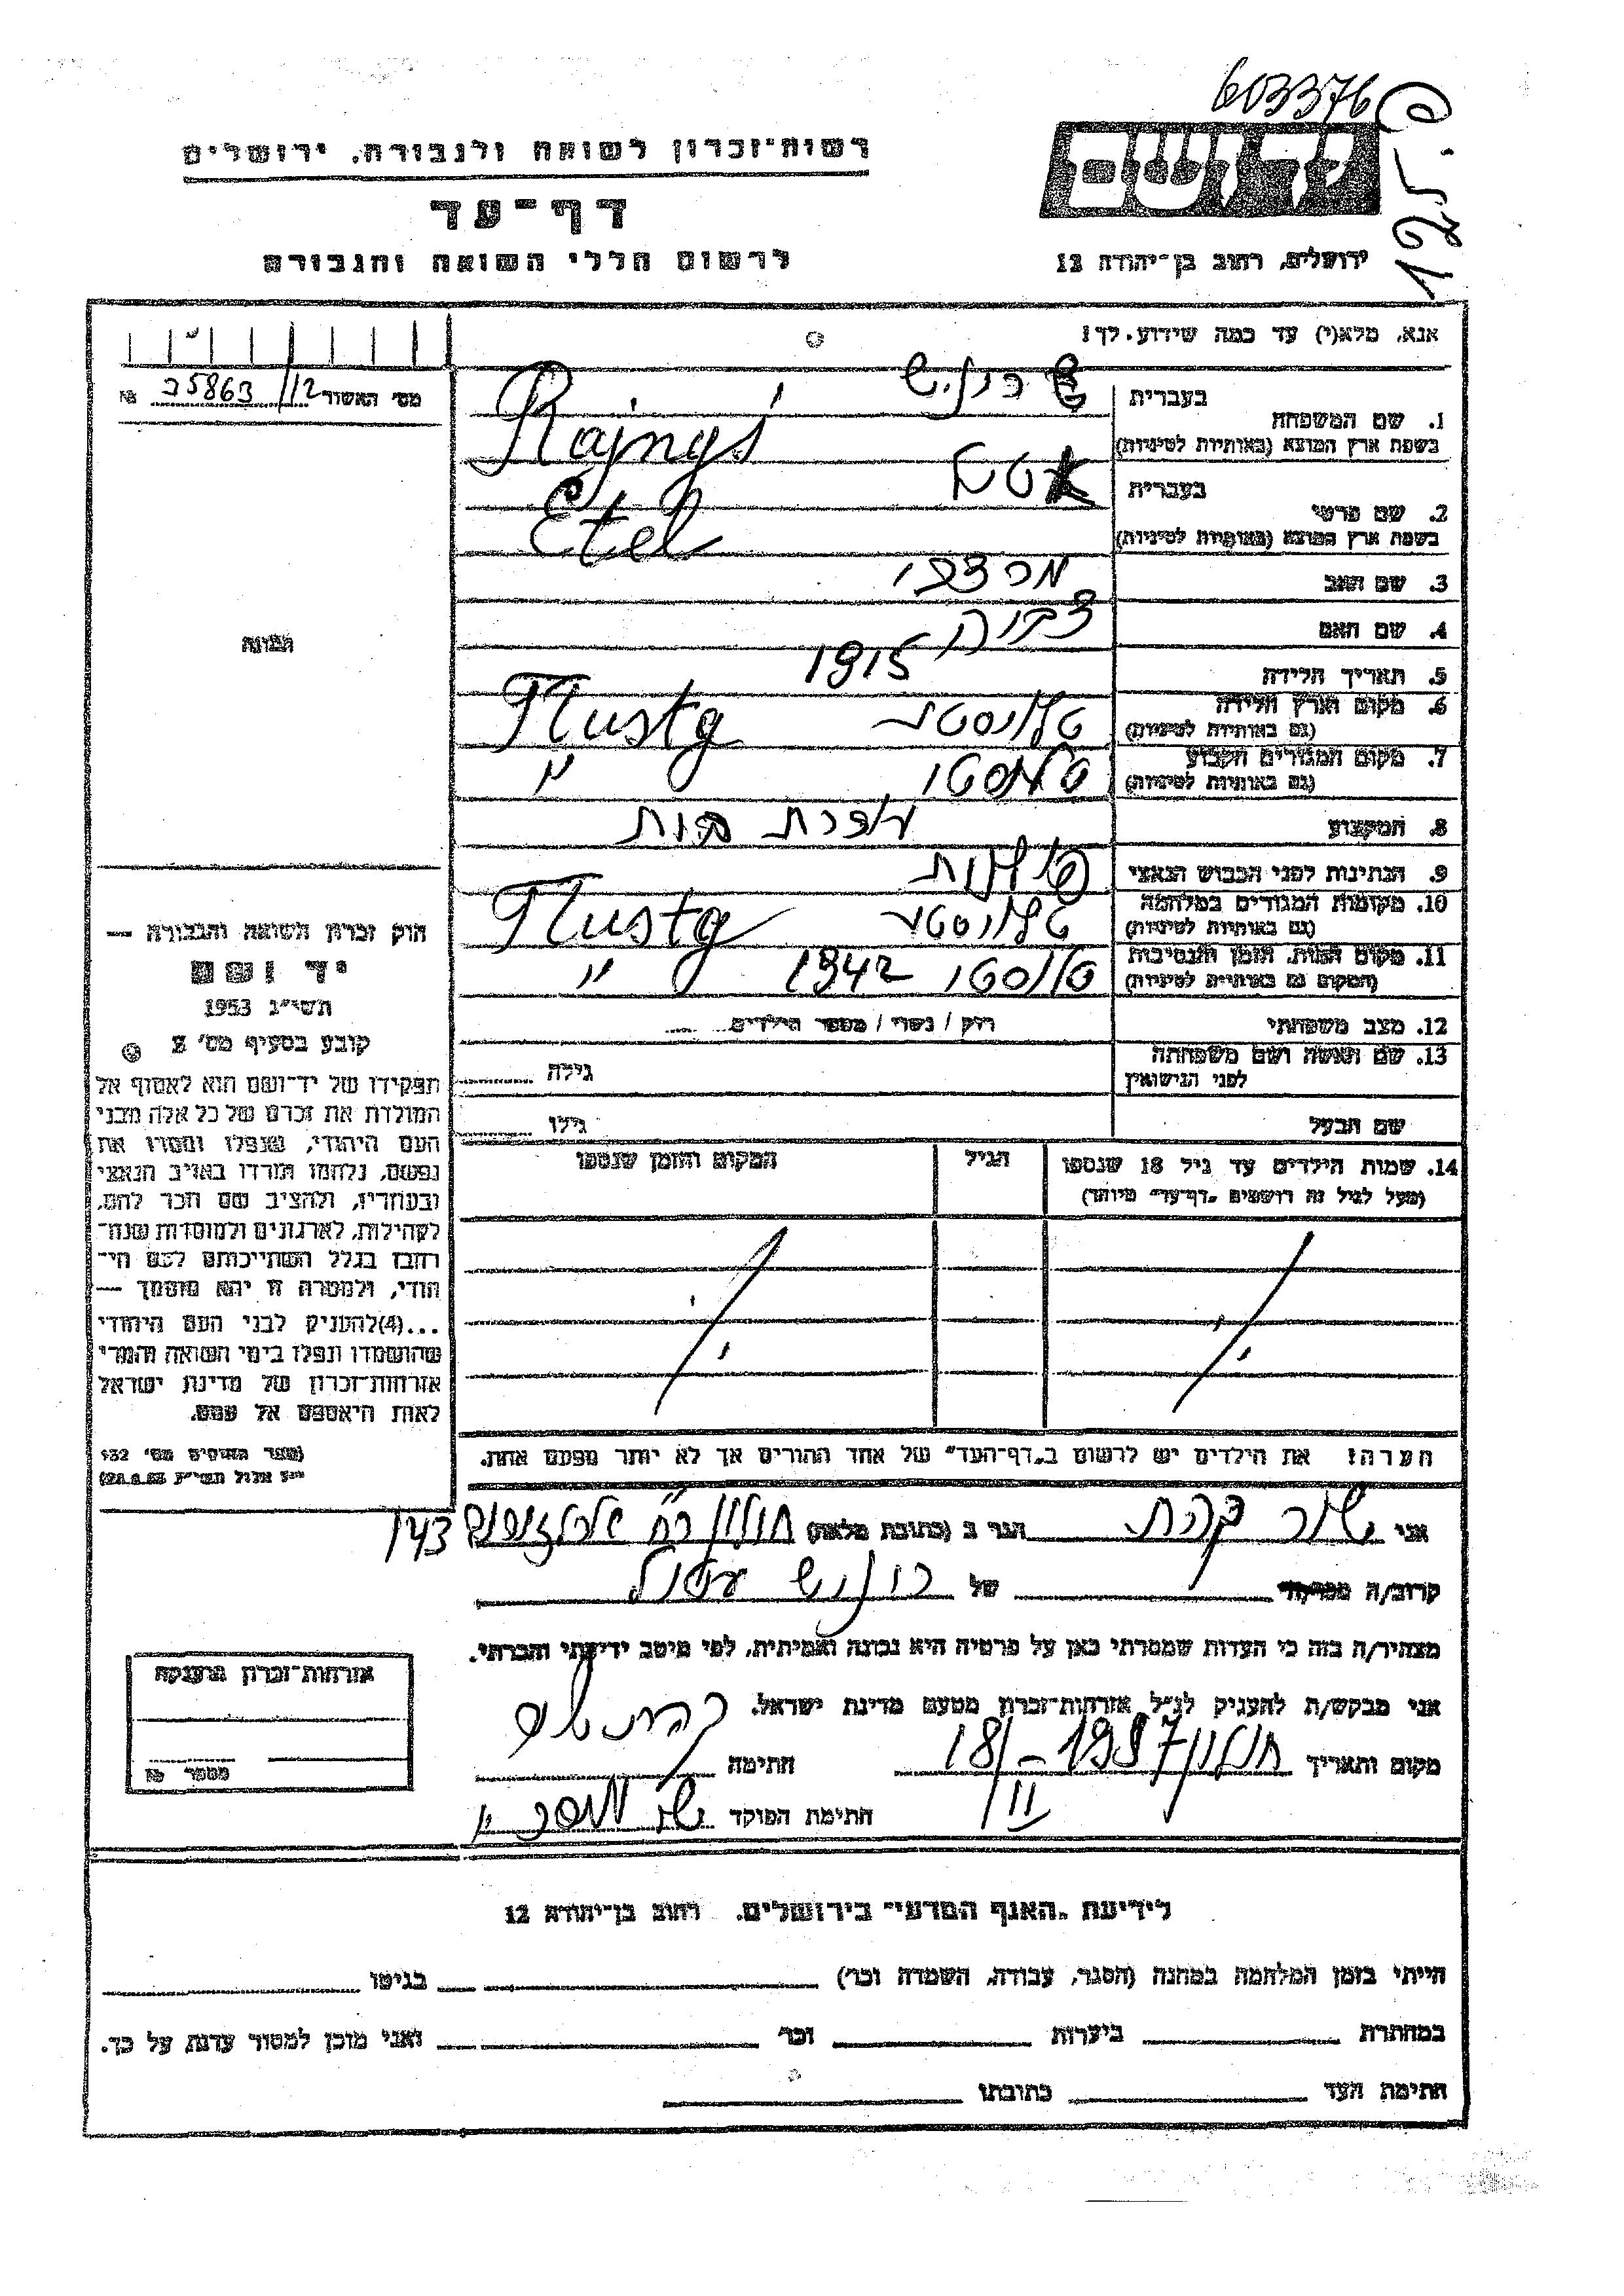 603376
125.G
רשות־זכרון לשואה ולגבורה, ירושלים
דף־עד
לרשום חללי השואה והגבורה
יד ושם
ירושלים, רחוב בן־יהודה 12
אנא, מלא(י) עד כמה שידוע לך!
מס׳ האשור 25863/12 №
1. שם המשפחה
בעברית
בשפת ארץ המוצא (באותיות לטיניות)
Rajnys
2. שם פרטי
בעברית
אטל
בשפת ארץ המוצא (באותיות לטיניות)
Etel
3. שם האב
מרדכי
4. שם האם
5. תאריך הלידה
1915
6. מקום וארץ הלידה
(גם באותיות לטיניות)
טלוסטה Tlusta
7. מקום המגורים הקבוע
(גם באותיות לטיניות)
טלוסטה "
8. המקצוע
עקרת בית
9. הנתינות לפני הכבוש הנאצי
פולנית
10. מקומות המגורים במלחמה
(גם באותיות לטיניות)
טלוסטה Tlusta
11. מקום המות, הזמן והנסיבות
(המקום גם באותיות לטיניות)
טלוסטה 1942 "
12. מצב משפחתי
רוק / נשוי / מספר הילדים
13. שם האשה ושם משפחתה
לפני הנישואין
גילה
שם הבעל
גילו
14. שמות הילדים עד גיל 18 שנספו
(מעל לגיל זה רושמים „דף־עד״ מיוחד)
הגיל
המקום והזמן שנספו
הערה! את הילדים יש לרשום ב„דף־העד״ של אחד ההורים אך לא יותר מפעם אחת.
התמונה
חוק זכרון השואה והגבורה —
יד ושם
תשי״ג 1953
קובע בסעיף מס׳ 2
תפקידו של יד־ושם הוא לאסוף אל
המולדת את זכרם של כל אלה מבני
העם היהודי, שנפלו ומסרו את
נפשם, נלחמו ומרדו באויב הנאצי
ובעוזריו, ולהציב שם וזכר להם,
לקהילות, לארגונים ולמוסדות שנח־
רבו בגלל השתייכותם לעם הי־
הודי, ולמטרה זו יהא מוסמך —
...(4) להעניק לבני העם היהודי
שהושמדו ונפלו בימי השואה והמרי
אזרחות־זכרון של מדינת ישראל
לאות היאספם אל עמם.
(ספר החוקים מס׳ 132
י״ז אלול תשי״ג 28.8.53)
אני
הגר ב (כתובת מלאה) חולון 143
קרוב/ה
של
מצהיר/ה בזה כי העדות שמסרתי כאן על פרטיה היא נכונה ואמיתית, לפי מיטב ידיעתי והכרתי.
אני מבקש/ת להעניק לנ״ל אזרחות־זכרון מטעם מדינת ישראל.
מקום ותאריך חולון 18/II – 1957
חתימה
חתימת הפוקד
אזרחות־זכרון מוענקה
מספר №
לידיעת „האגף המדעי״ בירושלים, רחוב בן־יהודה 12
הייתי בזמן המלחמה במחנה (הסגר, עבודה, השמדה וכו׳)
בגיטו
במחתרת
ביערות
וכו׳
ואני מוכן למסור עדות על כך.
חתימת העד
כתובתו